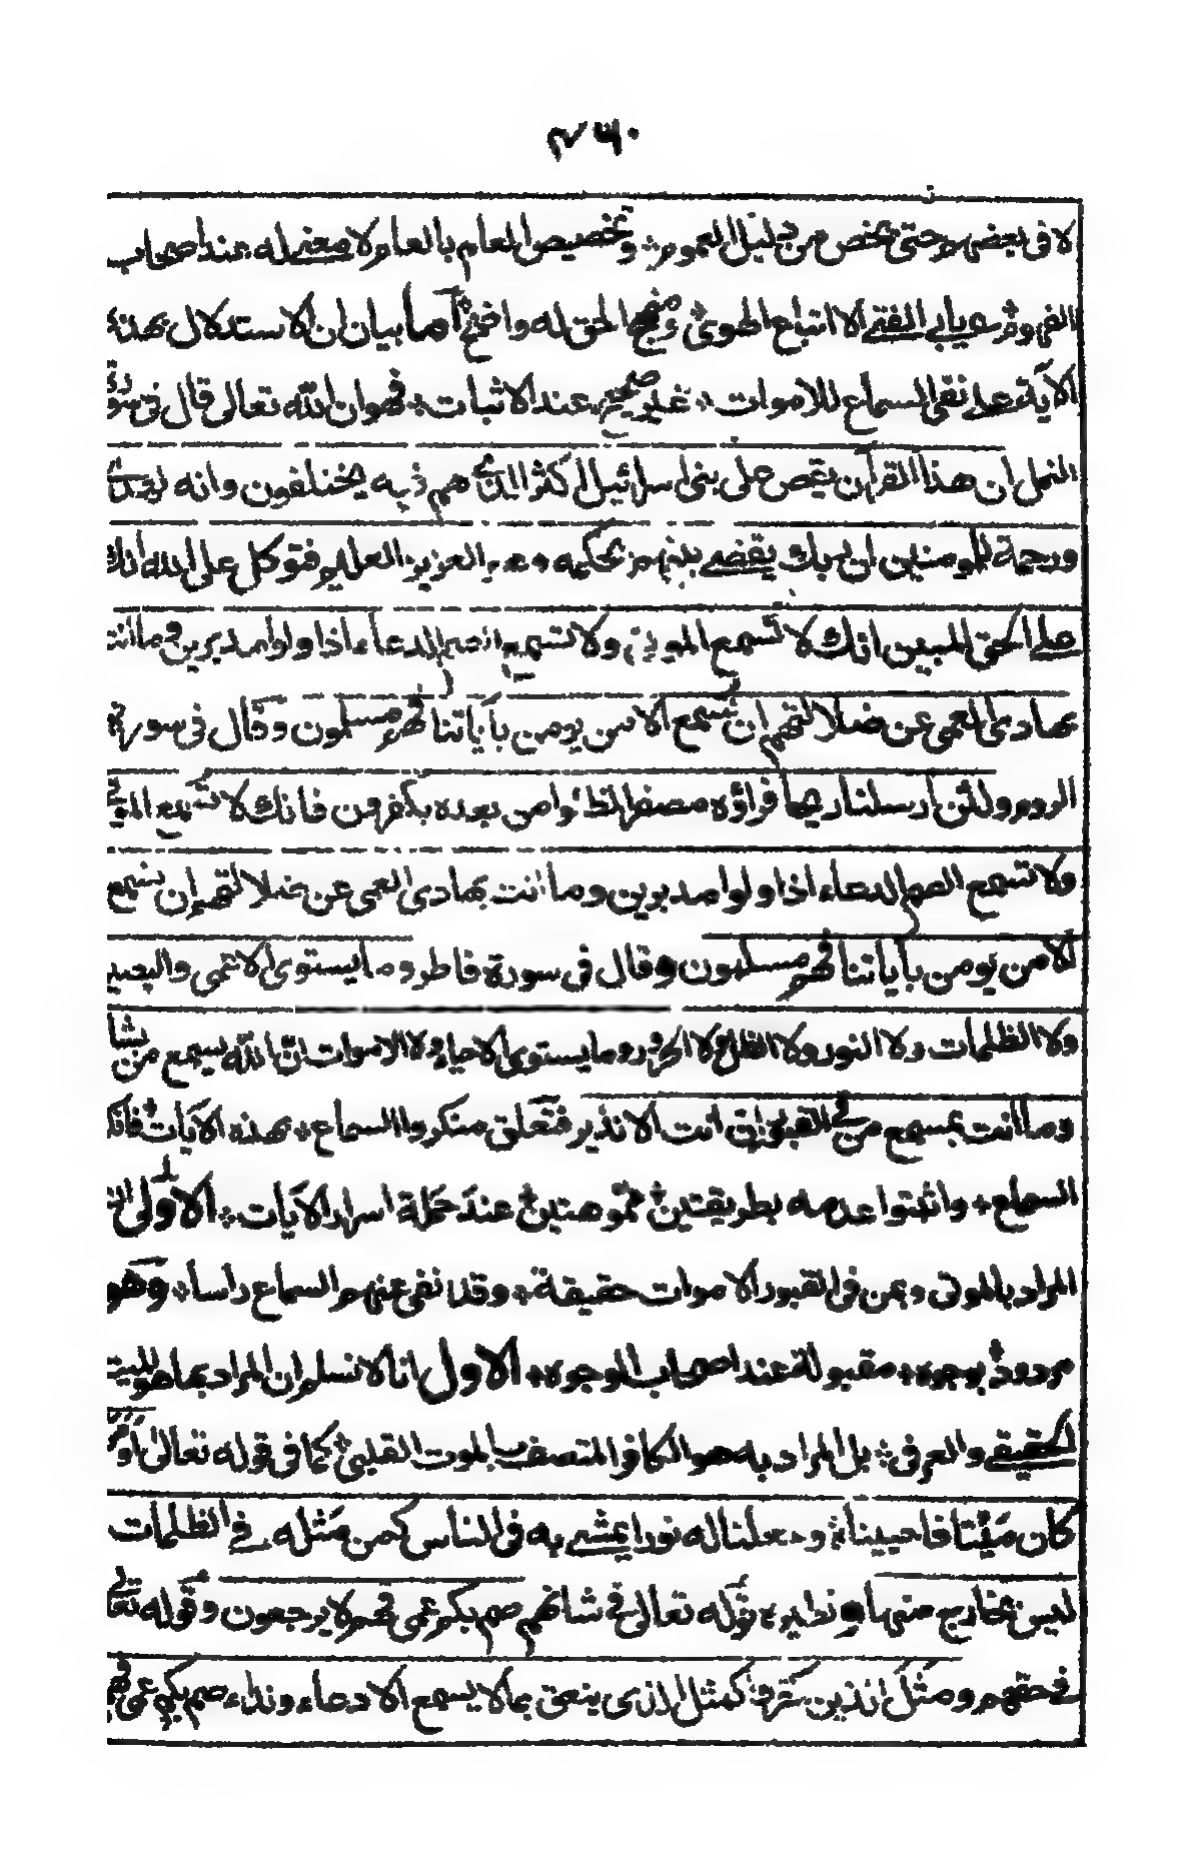 لا فى بعضهم حتى يخص من دليل العموم؛ وتخصيص العام بالعام لا معنى له عند اصحاب
الفهوم؛ يابى الفتى الا اتباع الهوى؛ ومنهج الحق له واضح اما بيان ان الاستدلال بهذه
الآية على نفى السماع للاموات؛ غير صحيح عند الاثبات؛ فهو ان الله تعالى قال فى سورة
النمل ان هذا القرآن يقص على بنى اسرائيل اكثر الذى هم فيه يختلفون وانه لهدى
ورحمة للمومنين ان ربك يقضى بينهم بحكمه وهو العزيز العليم فتوكل على الله انك
على الحق المبين انك لا تسمع الموتى ولا تسمع الصم الدعاء اذا ولوا مدبرين وما انت
بهادى العمى عن ضلالتهم ان تسمع الا من يومن بآياتنا فهم مسلمون وقال فى سورة
الروم ولئن ارسلنا ريحا فراؤه مصفرا لظلوا من بعده يكفرون فانك لا تسمع الموتى
ولا تسمع الصم الدعاء اذا ولوا مدبرين وما انت بهادى العمى عن ضلالتهم إن تسمع
الا من يومن بآياتنا فهم مسلمون وقال فى سورة فاطر وما يستوى الاعمى والبصير
ولا الظلمات ولا النور ولا الظل ولا الحرور وما يستوى الاحياء ولا الاموات ان الله يسمع من يشاء
وما انت بمسمع من فى القبور ان انت الا نذير فتعلق منكروا السماع؛ بهذه الآيات
السماع؛ واثبتوا عدمه بطريقتين؛ عند حملة اسرار الآيات؛ الاولى ان
المراد بالموتى وبمن فى القبور الاموات حقيقة؛ وقد نفى عنهم السماع راسا؛ وهو
مردود بوجوه؛ مقبولة عند اصحاب الوجوه؛ الاول انا لا نسلم ان المراد بها هو الميت
الحقيقى والعرفى؛ بل المراد به هو الكافر المتصف بالموت القلبى؛ كما فى قوله تعالى او من
كان ميتا فاحييناه وجعلنا له نورا يمشى به فى الناس كمن مثله فى الظلمات
ليس بخارج منها ونظيره قوله تعالى فى شانهم صم بكم عمى فهم لا يرجعون وقوله تعالى
فى حقهم ومثل الذين كفروا كمثل الذى ينعق بما لا يسمع الا دعاء ونداء صم بكم عمى فهم